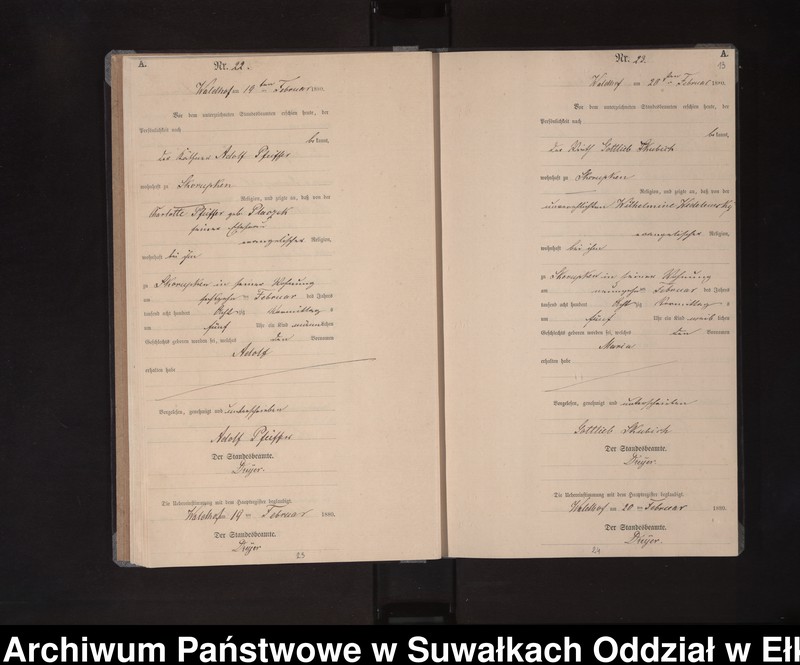 A.
Nr. 22.
Waldhof am 19ten Februar 1880.
Vor dem unterzeichneten Standesbeamten erschien heute, der
Persönlichkeit nach
bekannt,
der Käthner Adolf Pfeiffer
wohnhaft zu Skorupken
Religion, und zeigte an, daß von der
Charlotte Pfeiffer geb. Placzek
seiner Ehefrau
evangelischer Religion,
wohnhaft bei ihm
zu Skorupken in seiner Wohnung
am Februar des Jahres
tausend acht hundert Achtzig Vormittag s
um fünf Uhr ein Kind männlichen
Geschlechts geboren worden sei, welches den Vornamen
Adolf
erhalten habe
Vorgelesen, genehmigt und unterschrieben
Adolf Pfeiffer
Der Standesbeamte.
Die Uebereinstimmung mit dem Hauptregister beglaubigt.
Waldhof am 19ten Februar 1880.
Der Standesbeamte.
23
A.
13
Nr. 23.
Waldhof am 20ten Februar 1880.
Vor dem unterzeichneten Standesbeamten erschien heute, der
Persönlichkeit nach
bekannt,
der Gottlieb Skubich
wohnhaft zu Skorupken
Religion, und zeigte an, daß von der
unverehelichten Wilhelmine
evangelischer Religion,
wohnhaft bei ihm
zu Skorupken in seiner Wohnung
am neunzehnten Februar des Jahres
tausend acht hundert Achtzig Vormittag s
um fünf Uhr ein Kind weiblichen
Geschlechts geboren worden sei, welches den Vornamen
Maria
erhalten habe
Vorgelesen, genehmigt und unterschrieben
Gottlieb Skubich
Der Standesbeamte.
Die Uebereinstimmung mit dem Hauptregister beglaubigt.
Waldhof am 20ten Februar 1880.
Der Standesbeamte.
24
Archiwum Państwowe w Suwałkach Oddział w Ełk